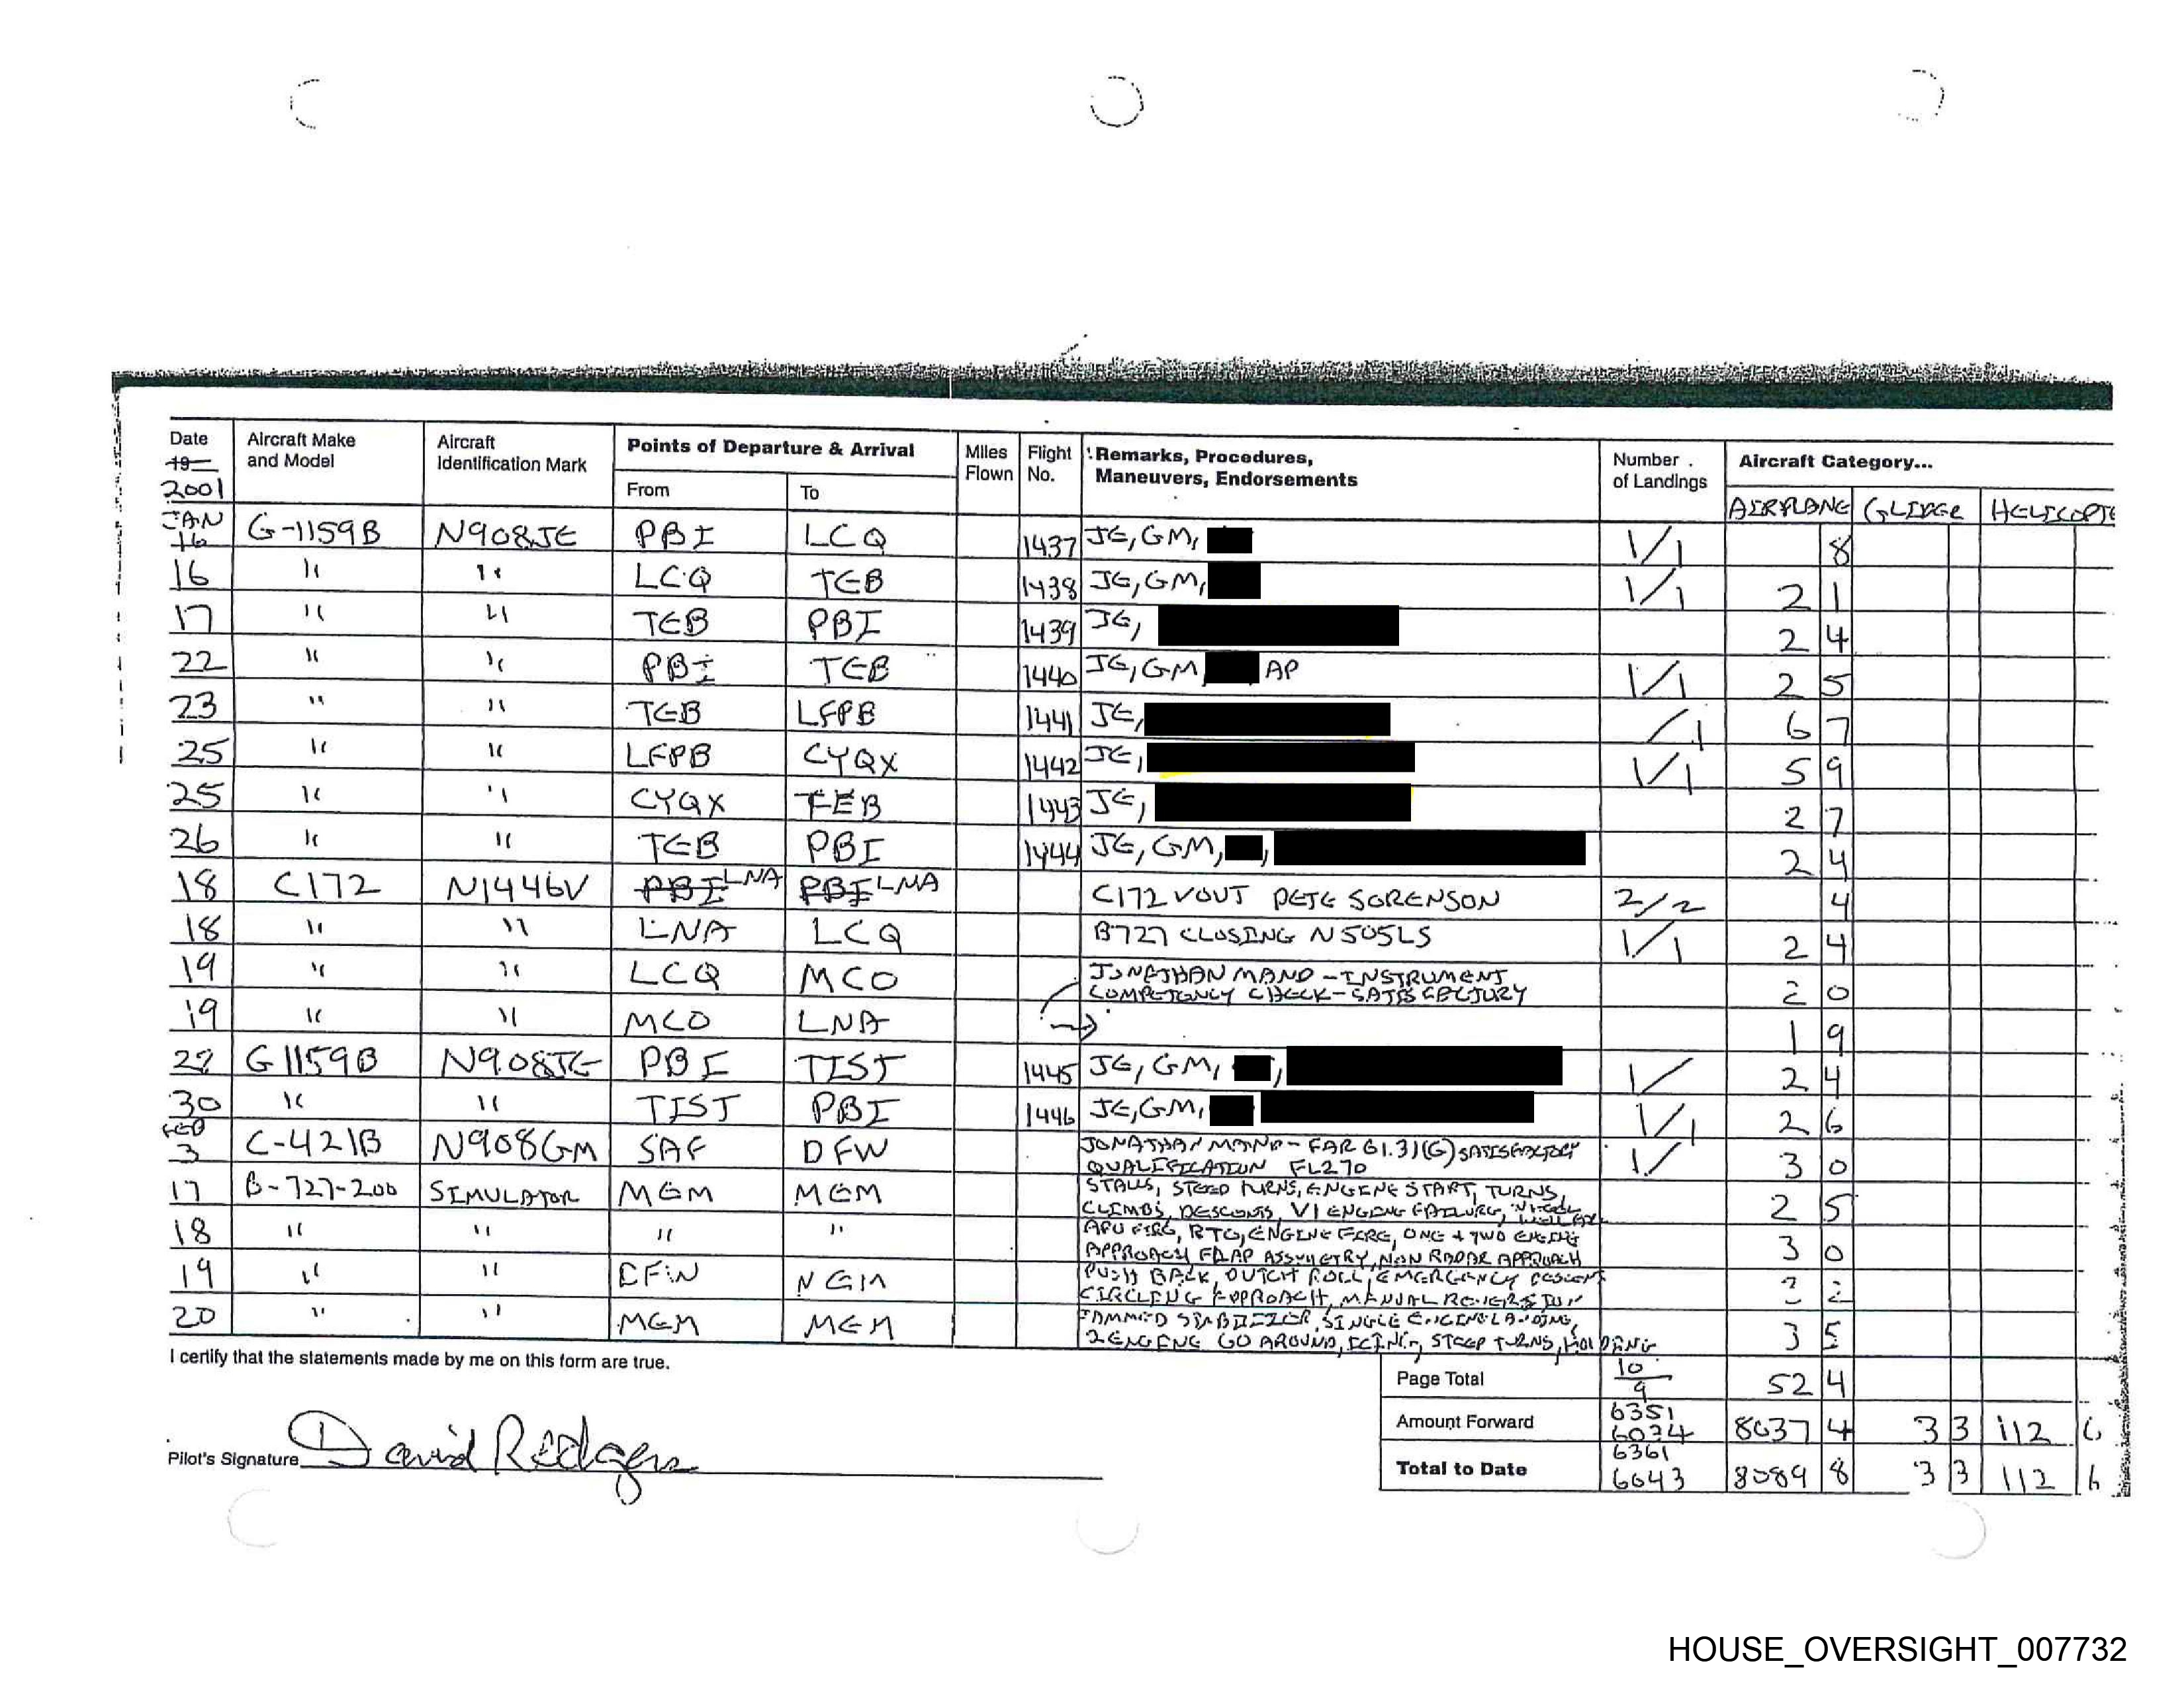 Date Aircraft Make Aircraft Points of Departure & Arrival Miles Flight Remarks, Procedures, Number Aircraft Category...
19 and Model Identification Mark Flown No. Maneuvers, Endorsements of Landings
2001 From To AIRPLANE GLIDER HELICOPTE
JAN 16 G-1159B N908JE PBI LCQ 1437 JE, GM, 1/1 8
16 " " LCQ TEB 1438 JE, GM, 1/1 2 1
17 " " TEB PBI 1439 JE, 2 4
22 " " PBI TEB 1440 JE, GM AP 1/1 2 5
23 " " TEB LFPB 1441 JE, /1 6 7
25 " " LFPB CYQX 1442 JE, 1/1 5 9
25 " " CYQX TEB 1443 JE, 2 7
26 " " TEB PBI 1444 JE, GM, , 2 4
18 C172 N1446V PBI LNA PBI LNA C172 VOUT PETE SORENSON 2/2 4
18 " " LNA LCQ B727 CLOSING N505LS 1/1 2 4
19 " " LCQ MCO JONATHAN MANO - INSTRUMENT
COMPETENCY CHECK - SATISFACTORY 2 0
19 " " MCO LNA 1 9
G1159B N908JE PBI TIST 1445 JE, GM, , 1/ 2 4
30 " " TIST PBI 1446 JE, GM, 1/1 2 6
FEB 3 C-421B N908GM SAF DFW JONATHAN MANO - FAR 61.31(G) SATISFACTORY
QUALIFICATION FL270 1/ 3 0
17 B-727-200 SIMULATOR MEM MEM STALLS, STEEP TURNS, ENGINE START, TURNS,
CLIMBS, DESCENTS, V1 ENGINE FAILURE, 2 5
18 " " " " APU FIRE, RTO, ENGINE FIRE, ONE + TWO ENGINE
APPROACH FLAP ASSYMETRY, NON RADAR APPROACH 3 0
19 " " PUSH BACK, DUTCH ROLL, EMERGENCY DESCENT
CIRCLING APPROACH, MANUAL REVERSION 2 2
20 " " MEM MEM JAMMED STABILIZER, SINGLE ENGINE LANDING,
2 ENGINE GO AROUND, ICING, STEEP TURNS, HOLDING 3 5
I certify that the statements made by me on this form are true.
Page Total 10/9 52 4
Amount Forward 6351 6034 8037 4 3 3 112 6
Pilot's Signature David Rodgers
Total to Date 6361 6043 8089 8 3 3 112 6
HOUSE_OVERSIGHT_007732